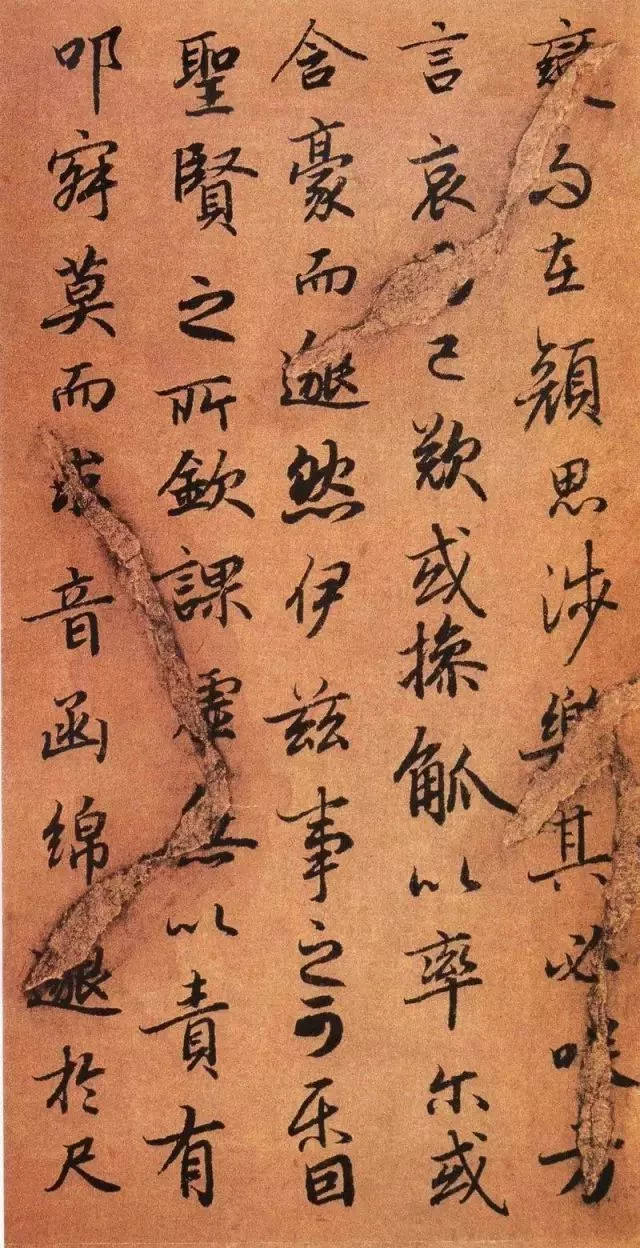 變而在顔思涉樂其必咲方
言哀已歎或操觚以率尔或
含豪而邈然伊兹事之可乐固
聖賢之所欽課虛無以責有
叩寂莫而求音函綿邈於尺